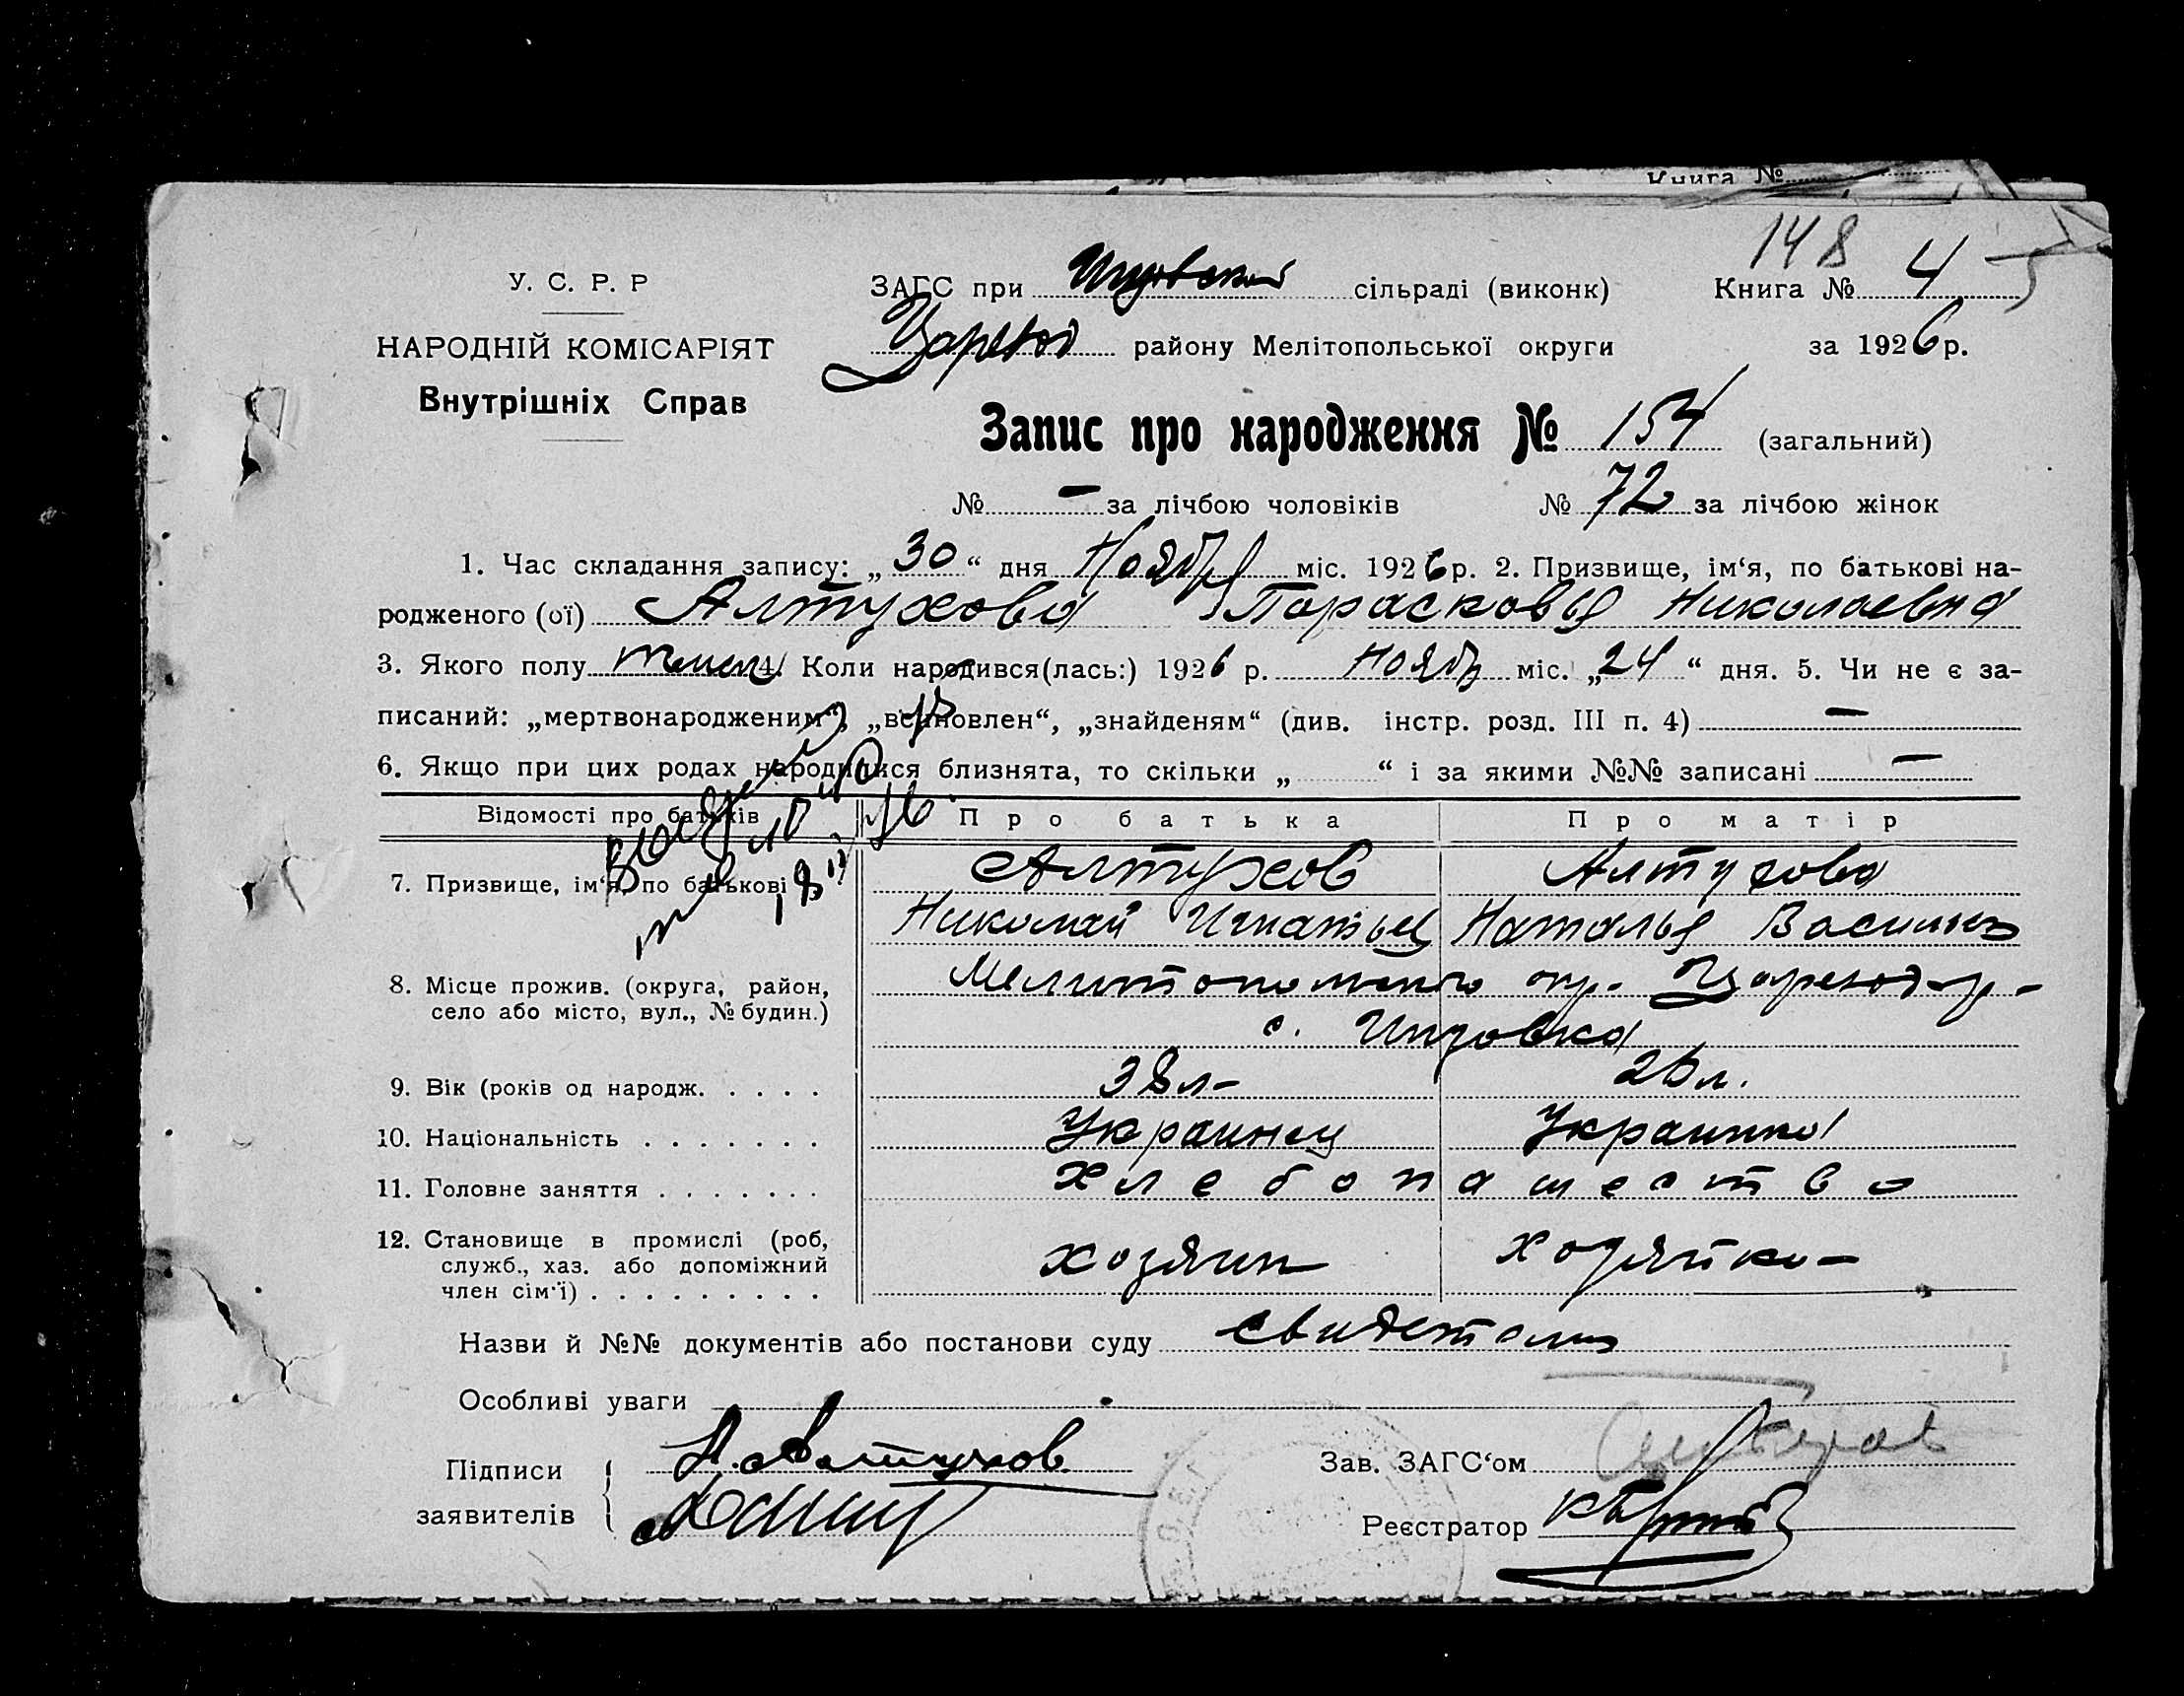 Книга №
148
У. С. Р. Р
ЗАГС при сільраді (виконк) Книга № 4
НАРОДНІЙ КОМІСАРІЯТ
району Мелітопольської округи за 1926 р.
Внутрішніх Справ
Запис про народження № 154 (загальний)
№ — за лічбою чоловіків № 72 за лічбою жінок
1. Час складання запису: „30“ дня Ноября міс. 1926 р. 2. Призвище, ім‘я, по батькові на-
родженого (ої) Алтухова Парасковья Николаевна
3. Якого полу 4. Коли народився(лась:) 1926 р. Ноябр міс. „24“ дня. 5. Чи не є за-
писаний: „мертвонародженим“, „всиновлен“, „знайденям“ (див. інстр. розд. III п. 4) —
6. Якщо при цих родах народилися близнята, то скільки „ “ і за якими №№ записані —
Відомості про батьків Про батька Про матір
7. Призвище, ім‘я, по батькові Алтухов Алтухова
Николай Игнатьев Наталья
8. Місце прожив. (округа, район, окр.
село або місто, вул., № будин.)
с.
9. Вік (років од народж. . . . . 38 л- 26 л.
10. Національність . . . . . . . Украинец Украинка
11. Головне заняття . . . . . . . Хлебопашество
12. Становище в промислі (роб, хозяин хозяйка
служб., хаз. або допоміжний
член сім‘ї) . . . . . . . . . .
Назви й №№ документів або постанови суду
Особливі уваги
Підписи Н. Алтухов
заявителів
Зав. ЗАГС‘ом
Реєстратор